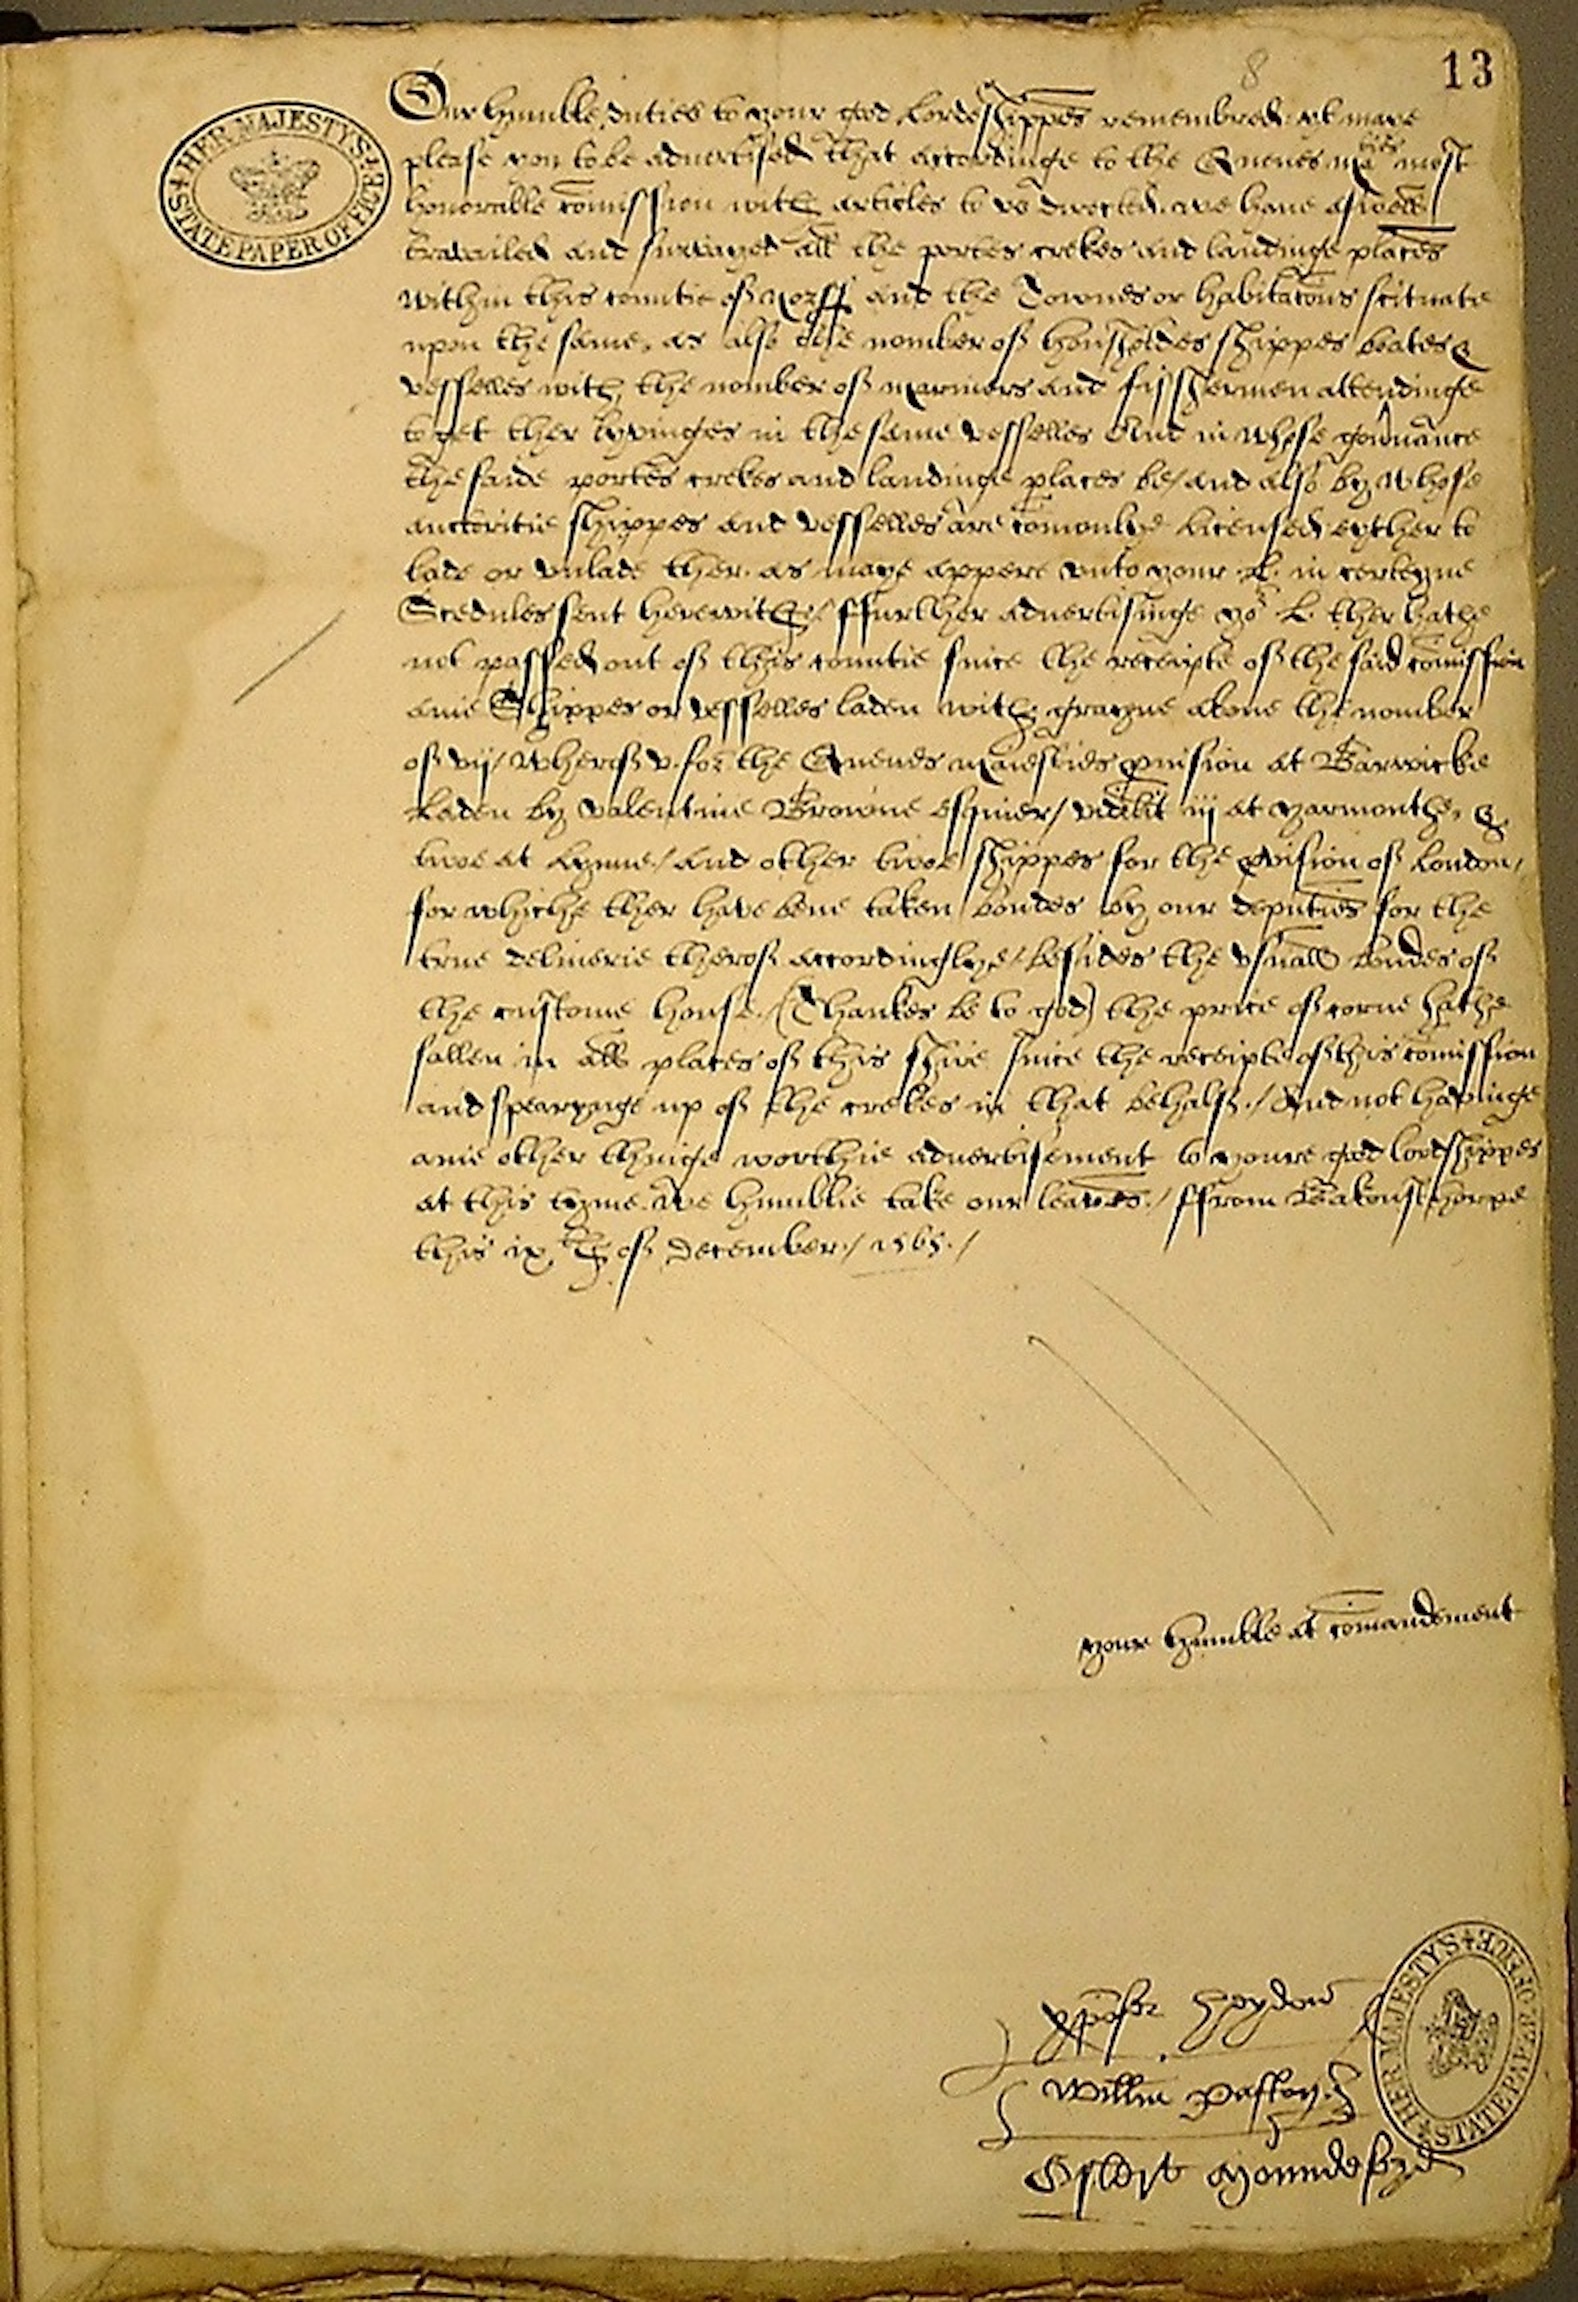 8
13
HER MAJESTYS STATE PAPER OFFICE
Our humble duties to your good Lordeshippes remembred. yt maye
please you to be advertised that accordinge to the Quenes Ma^ties most
honorable comission with articles to vs directed. we have aswell
travailed and survayed all the portes crekes and landinge places
within this countie of Norff and the Townes or habitacons scituate
upon the same, as also the nomber of housholdes shippes boates &
vesselles with the nomber of mariners and fisshermen attendinge
to get ther lyvinges in the same vesselles And in whose gouernance
the saide portes crekes and landinge places be / and also by whose
aucctoritie shippes and vesselles are comonlye licensed eyther to
lade or vnlade ther. as maye appere vnto your .L. in certeyne
Scedules sent herewith / ffurther advertisinge yo^r L. ther hathe
not passed out of this countie since the receipte of the said comission
anie Shippes or vesselles laden with grayne above the nomber
of vij / wherof v. for the Quenes maiesties pvision at Barwicke
Laden by Valentine Browne esquier / videlit iij at yarmouthe, &
twoe at Lynne / And other twoe shippes for the pvision of London /
for whiche ther have bene taken bondes by our deputies for the
true deliverie therof accordinglye / besides the vsuall bondes of
the custome house. / (Thankes be to god) the price of corne hathe
fallen in all places of this shire since the receipte of this comission
and spearynge up of the crekes in that behalf. / And not havinge
anie other thinge worthie advertisement to youre good lordshippes
at this tyme. We humblie take our leaves. / ffrom Bakonsthorpe
this ix^th of December / 1565. /
youre humble at comandement
Xpofer Heydon
Willm Paston
Osbert Moundeford
HER MAJESTYS STATE PAPER OFFICE